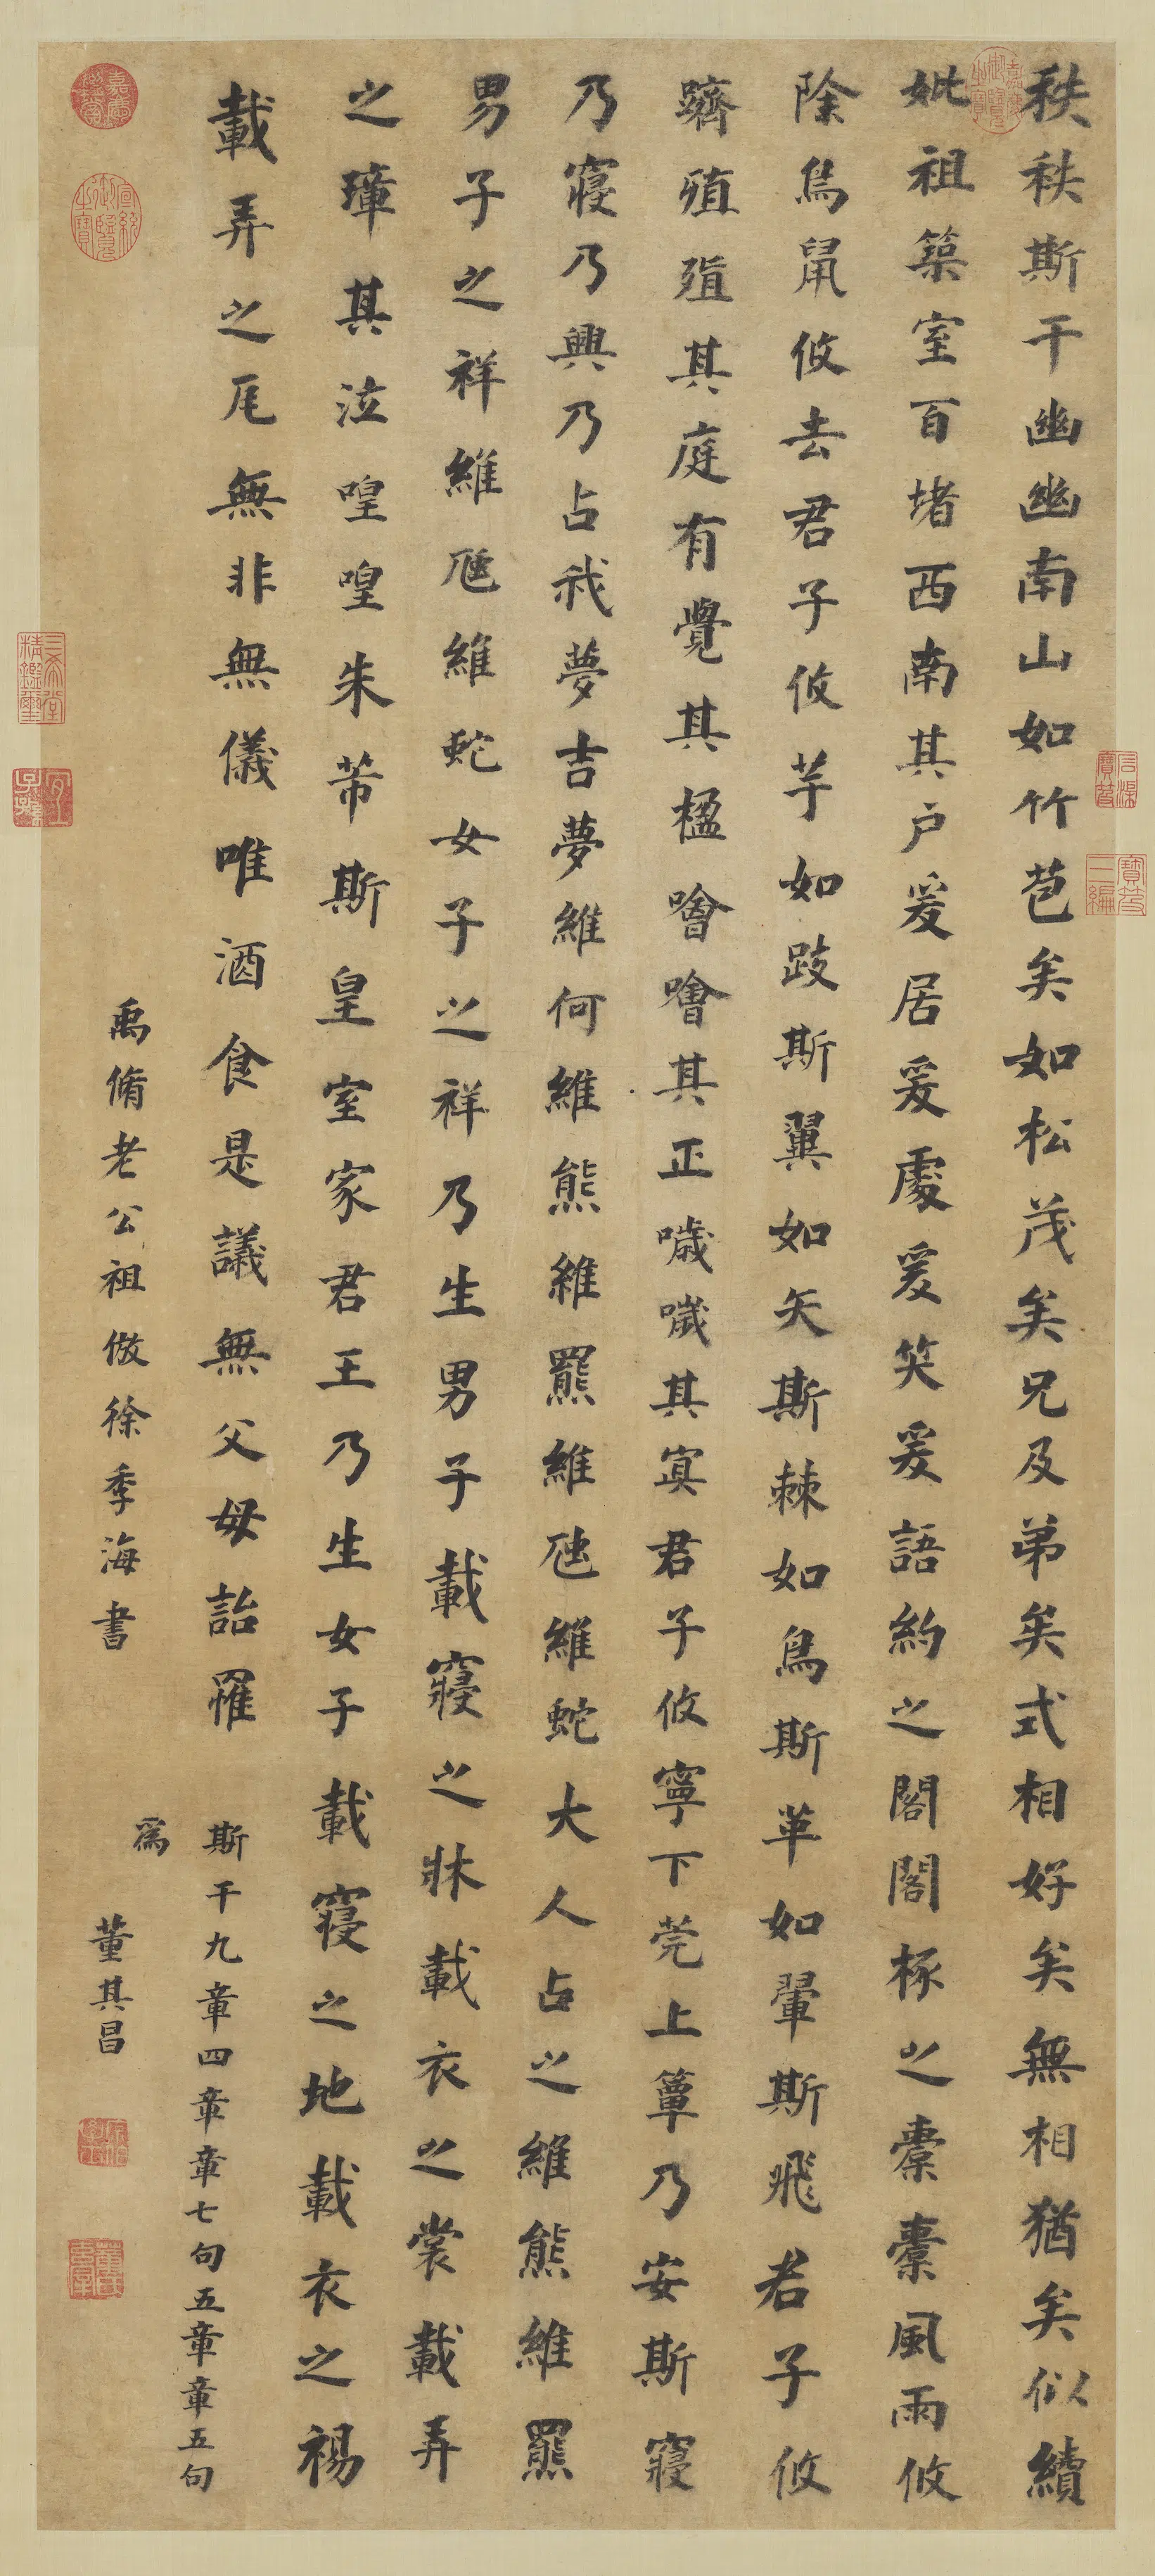 秩秩斯干幽幽南山如竹苞矣如松茂矣兄及弟矣式相好矣無相猶矣似續
妣祖築室百堵西南其户爰居爰處爰笑爰語約之閣閣椓之橐橐風雨攸
除鳥鼠攸去君子攸芋如跂斯翼如矢斯棘如鳥斯革如翬斯飛君子攸
躋殖殖其庭有覺其楹噲噲其正噦噦其冥君子攸寧下莞上簟乃安斯寢
乃寢乃興乃占我夢吉夢維何維熊維羆維虺維蛇大人占之維熊維羆
男子之祥維虺維蛇女子之祥乃生男子載寢之牀載衣之裳載弄
之璋其泣喤喤朱芾斯皇室家君王乃生女子載寢之地載衣之裼
載弄之瓦無非無儀唯酒食是議無父母詒罹
斯干九章四章章七句五章章五句
為
禹脩老公祖倣徐季海書
董其昌
嘉慶御覽之寶
嘉慶鑑賞
宣統御覽之寶
三希堂精鑑璽
宜子孫
石渠寶笈
寶笈三編